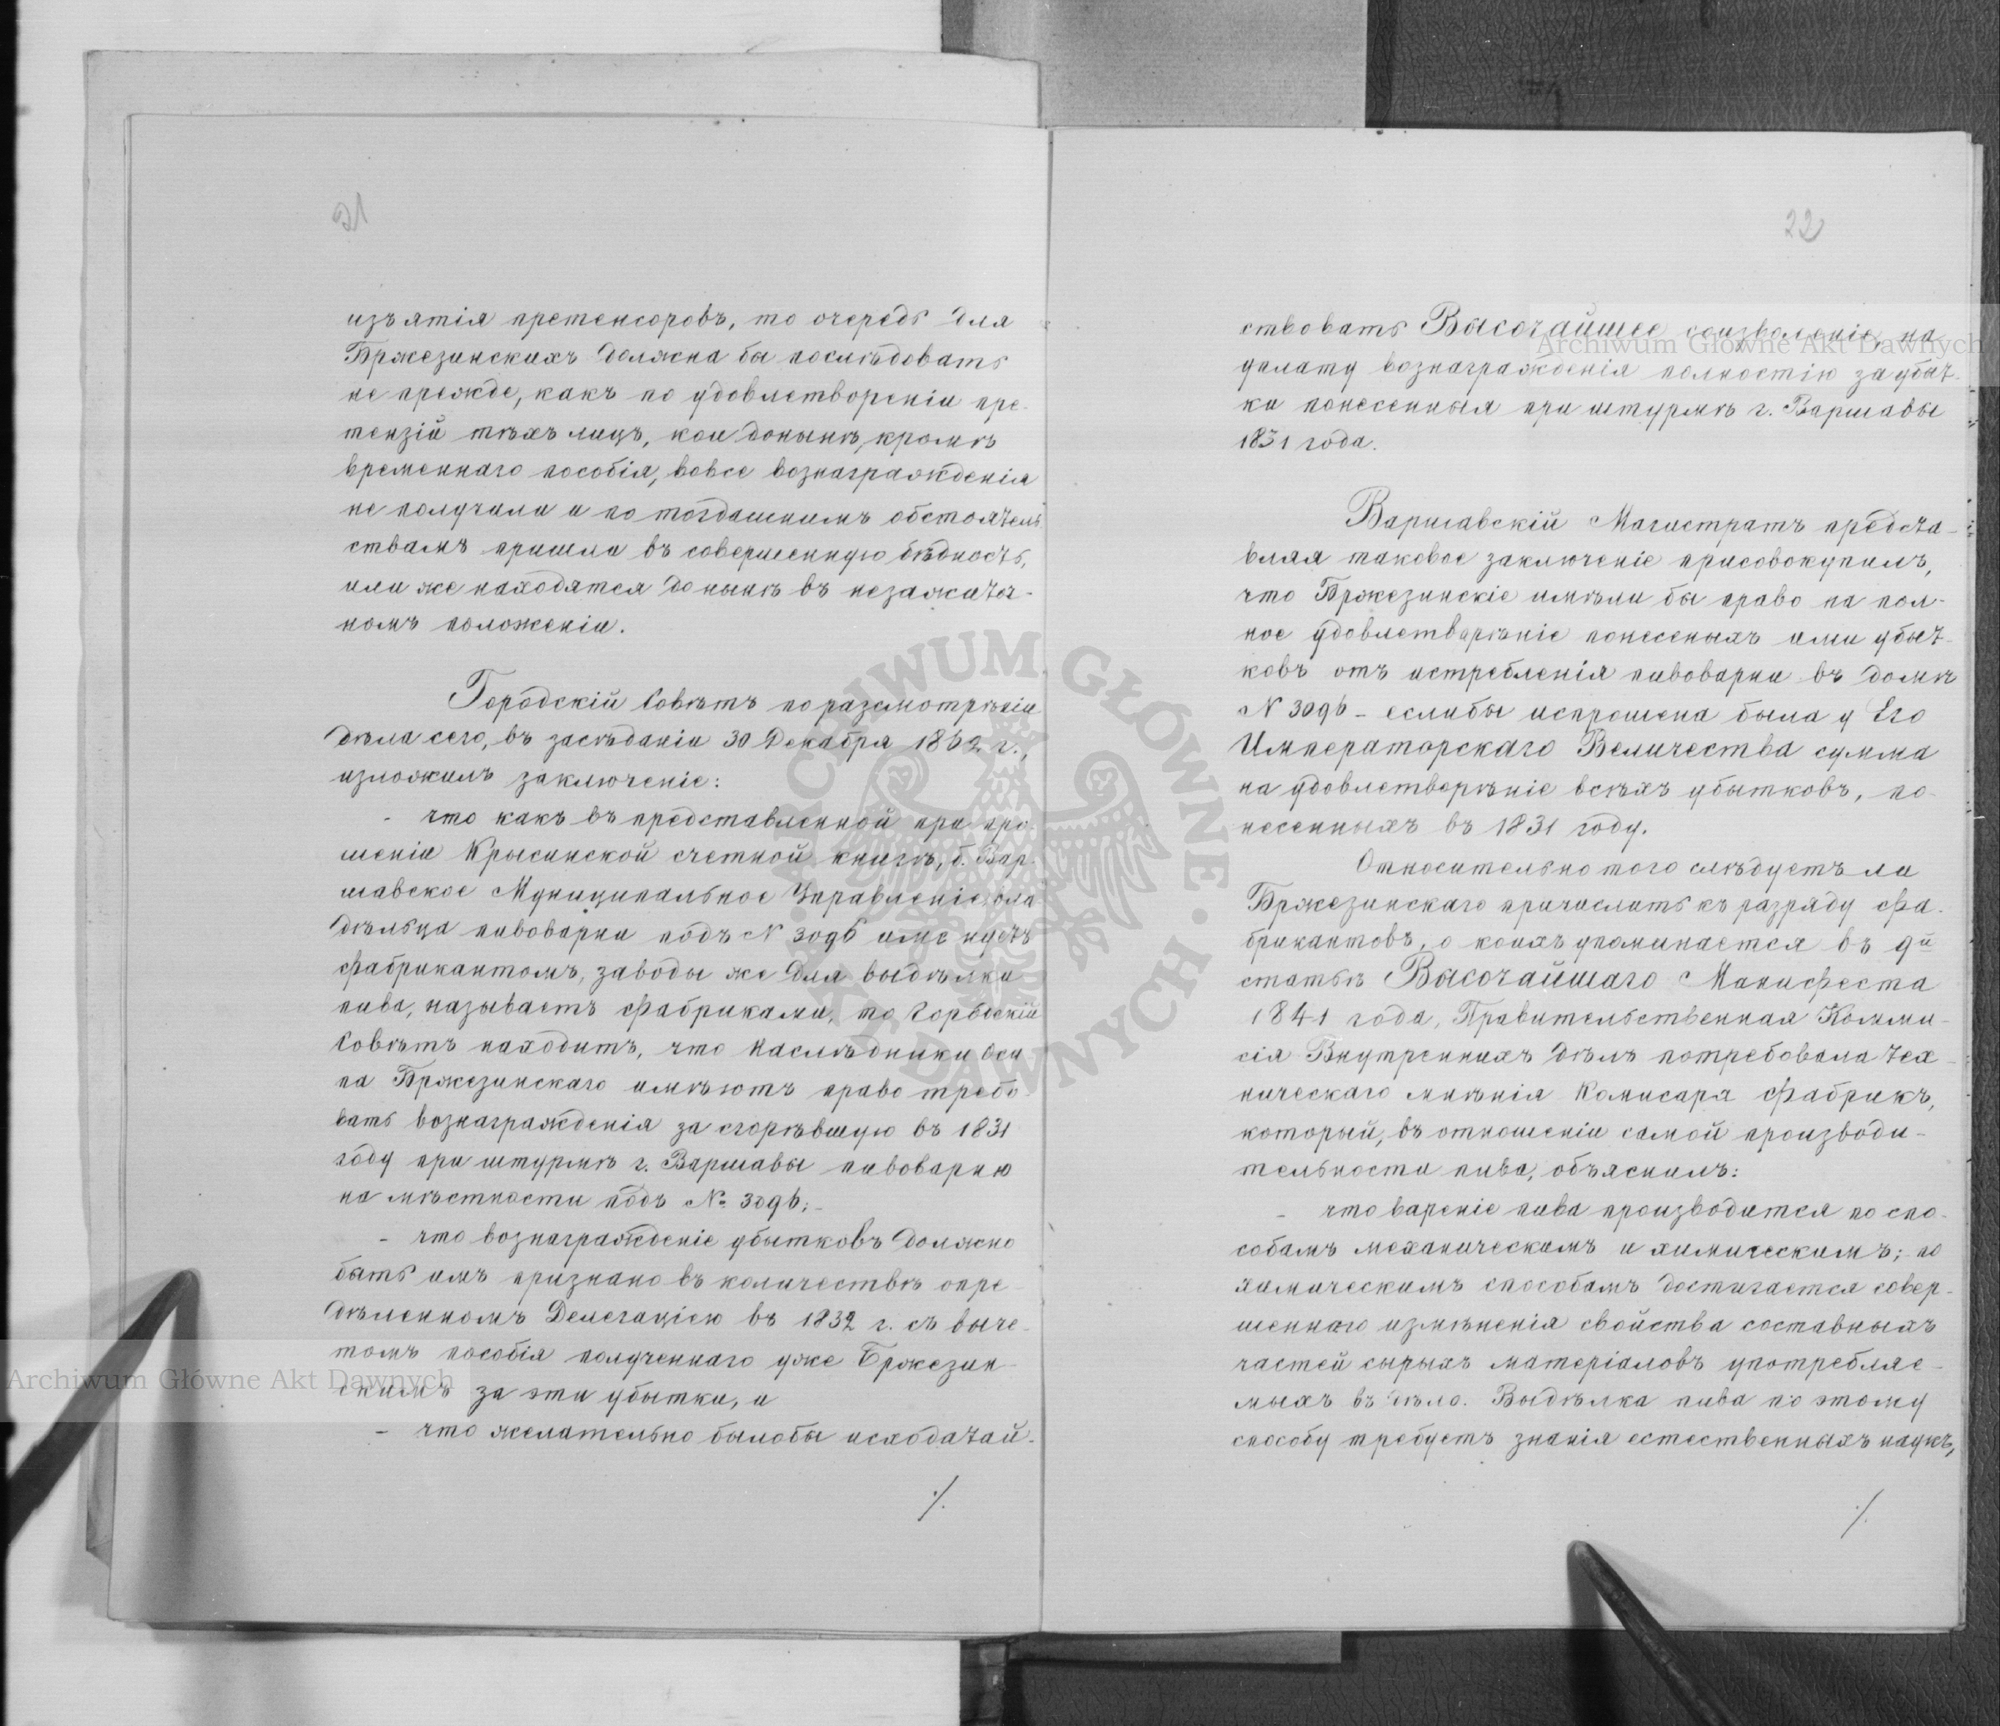 21
изъятія претенсоровъ, то очередь для
Бржезинскихъ должна бы послѣдовать
не прежде, какъ по удовлетвореніи пре-
тензій тѣхъ лицъ, кои донынѣ, кромѣ
временнаго пособія, вовсе вознагражденія
не получили и по тогдашнимъ обстоятель
ствамъ пришли въ совершенную бѣдность,
или же находятся донынѣ въ незажиточ-
номъ положеніи.
Городскій Совѣтъ по разсмотрѣніи
дѣла сего, въ засѣданіи 30 Декабря 1862 г.,
изложилъ заключеніе:
- что какъ въ представленной при про-
шеніи Крысинской счетной книгѣ, б. Вар-
шавское Муниципальное Управленіе, вла
дѣльца пивоварни подъ N 3096 именуетъ
фабрикантомъ, заводы же для выдѣлки
пива, называетъ фабриками, то Городскій
Совѣтъ находитъ, что наслѣдники Оси
па Бржезинскаго имѣютъ право требо-
вать вознагражденія за сгорѣвшую въ 1831
году при штурмѣ г. Варшавы пивоварню
на мѣстности подъ № 3096;-
- что вознагражденіе убытковъ должно
быть имъ признано въ количествѣ опре-
дѣленномъ Делегаціею въ 1832 г. съ выче-
томъ пособія полученнаго уже Бржезин-
скимъ за эти убытки, и
- что желательно былобы исходатай-
./.
22
ствовать Высочайшее соизволеніе, на
уплату вознагражденія полностію за убыт-
ки понесенныя при штурмѣ г. Варшавы
1831 года.
Варшавскій Магистратъ предста-
вляя таковое заключеніе присовокупилъ,
что Бржезинскіе имѣли бы право на пол-
ное удовлетворѣніе понесеныхъ ими убыт-
ковъ отъ истребленія пивоварни въ домѣ
N 3096 - еслибы испрошена была у Его
Императорскаго Величества сумма
на удовлетворѣніе всѣхъ убытковъ, по-
несенныхъ въ 1831 году.
Относительно того слѣдуетъ ли
Бржезинскаго причислить къ разряду фа-
брикантовъ, о коихъ упоминается въ 9й
статьѣ Высочайшаго Манифеста
1841 года, Правительственная Комми-
сія Внутреннихъ Дѣлъ потребовала тех-
ническаго мнѣнія Комисара фабрикъ,
который, въ отношеніи самой производи-
тельности пива, объяснилъ:
- что вареніе пива производится по спо-
собамъ механическимъ и химическимъ; по
химическимъ способамъ достигается совер-
шеннаго измѣненія свойства составныхъ
частей сырыхъ матеріаловъ употребляе-
мыхъ въ дѣло. Выдѣлка пива по этому
способу требуетъ знанія естественныхъ наукъ,
./.
Archiwum Główne Akt Dawnych
Archiwum Główne Akt Dawnych
ARCHIWUM GŁÓWNE AKT DAWNYCH